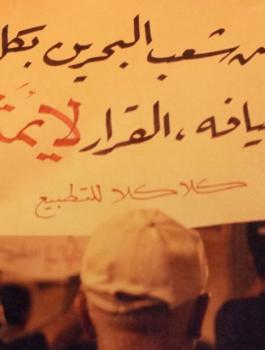 من شعب البحرين بكل
يافه، القرار لا يمث
كلا كلا للتطبيع